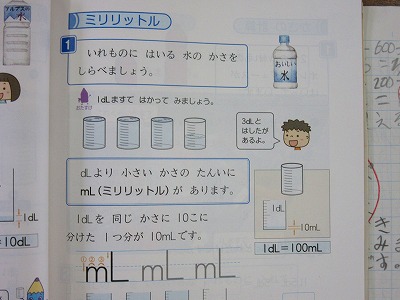 ミリリットル
1
いれものに はいる 水の かさを
しらべましょう。
おいしい
水
1dLますで はかって みましょう。
3dLと
はしたが
あるよ。
dLより 小さい かさの たんいに
mL(ミリリットル)が あります。
1dLを 同じ かさに 10こに
分けた 1つ分が 10mLです。
1dL
10mL
1dL=100mL
①②③
mL mL mL
水
1dL
=10dL
600
200